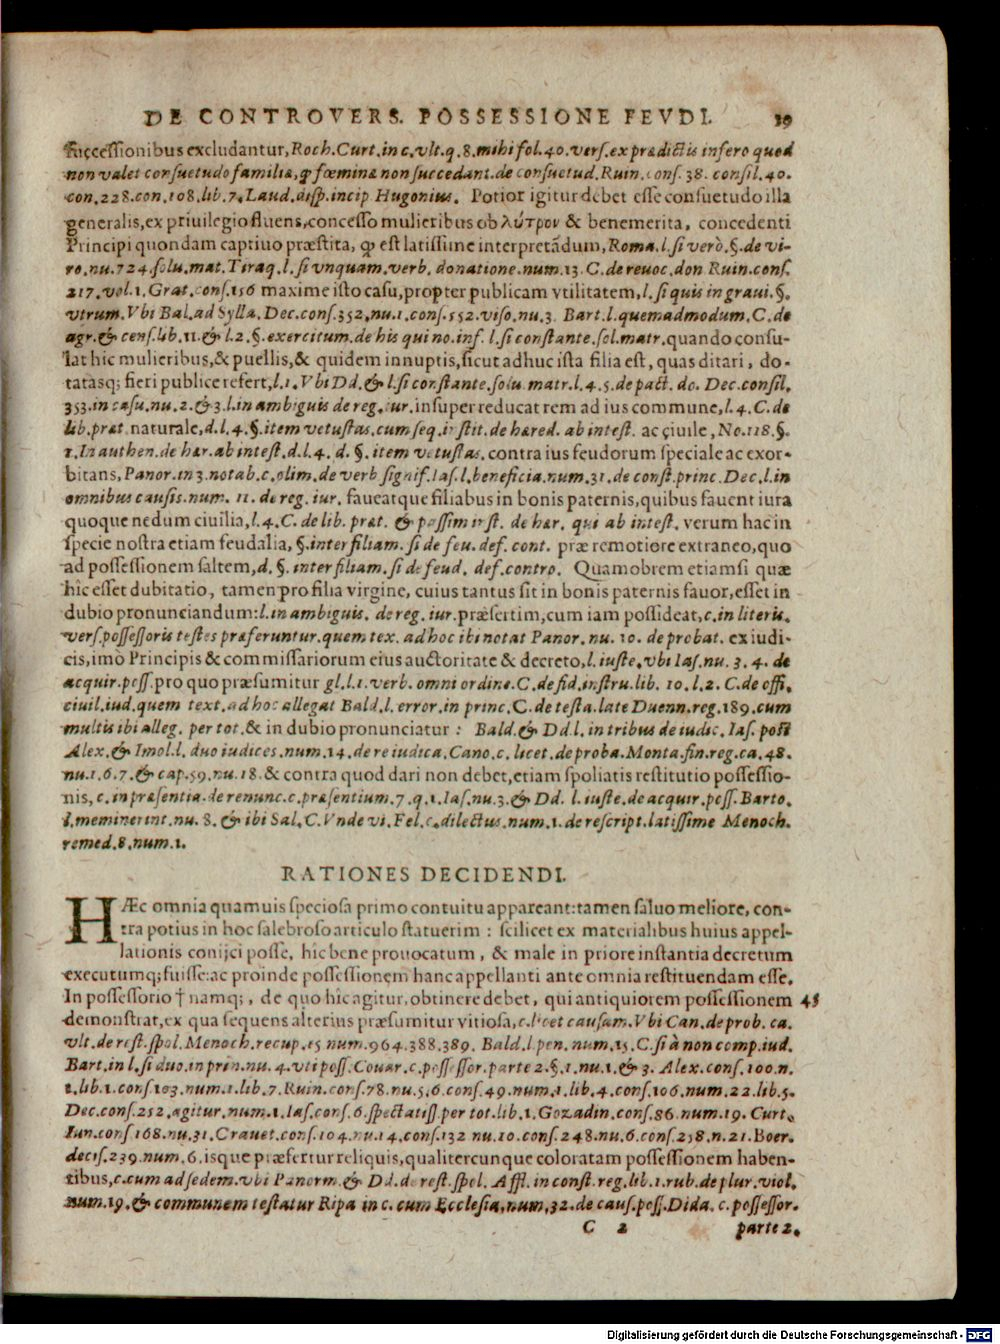 DE CONTROVERS. POSSESSIONE FEVDI. 19
successionibus excludantur, Roch. Curt. in c. vlt. q. 8. mihi fol. 40. vers. ex prædictis infero quod
non valet consuetudo familiæ, ꝙ fœminæ non succedant. de consuetud. Ruin. cons. 38. consil. 40.
con. 228. con. 108. lib. 7. Laud. disp. incip. Hugonius. Potior igitur debet esse consuetudo illa
generalis, ex priuilegio fluens, concesso mulieribus ob λύτρον & benemerita, concedenti
Principi quondam captiuo præstita, ꝙ est latissime interpretãdum, Roma. l. si verò. §. de vi-
ro. nu. 724. solu. mat. Tiraq. l. si vnquam. verb. donatione. num. 13. C. de reuoc. don. Ruin. cons.
217. vol. 1. Grat. cons. 156 maxime isto casu, propter publicam vtilitatem, l. si quis in graui. §.
vtrum. Vbi Bal. ad Sylla. Dec. cons. 352. nu. 1. cons. 552. viso. nu. 3. Bart. l. quemadmodum. C. de
agr. & cens. lib. 11. & l. 2. §. exercitum. de his qui no. inf. l. si constante. sol. matr. quando consu-
lat hic mulieribus, & puellis, & quidem innuptis, sicut adhuc ista filia est, quas ditari, do-
tatasq; fieri publice refert, l. 1. Vbi Dd. & l. si constante. solu. matr. l. 4. 5. de pact. do. Dec. consil.
353. in casu. nu. 2. & 3. l. in ambiguis de reg. iur. insuper reducat rem ad ius commune, l. 4. C. de
lib. præt. naturale, d. l. 4. §. item vetustas. cum seq. instit. de hæred. ab intest. ac ciuile, No. 118. §.
1. In authen. de hær. ab intest. d. l. 4. d. §. item vetustas. contra ius feudorum speciale ac exor-
bitans, Panor. in 3. notab. c. olim. de verb signif. Ias. l. beneficia. num. 31. de const. princ. Dec. l. in
omnibus causis. num. 11. de reg. iur. faueatque filiabus in bonis paternis, quibus fauent iura
quoque nedum ciuilia, l. 4. C. de lib. præt. & passim inst. de hær. qui ab intest. verum hac in
specie nostra etiam feudalia, §. inter filiam. si de feu. def. cont. præ remotiore extraneo, quo
ad possessionem saltem, d. §. inter filiam. si de feud. def. contro. Quamobrem etiamsi quæ
hic esset dubitatio, tamen pro filia virgine, cuius tantus sit in bonis paternis fauor, esset in
dubio pronunciandum: l. in ambiguis. de reg. iur. præsertim, cum iam possideat, c. in literis.
vers. possessoris testes præferuntur. quem tex. ad hoc ibi notat Panor. nu. 10. de probat. ex iudi-
cis, imò Principis & commissariorum eius auctoritate & decreto, l. iuste. vbi Ias. nu. 3. 4. de
acquir. poss. pro quo præsumitur gl. l. 1. verb. omni ordine. C. de fid. instru. lib. 10. l. 2. C. de offi.
ciuil. iud. quem text. ad hoc allegat Bald. l. error. in princ. C. de testa. late Duenn. reg. 189. cum
multis ibi alleg. per tot. & in dubio pronunciatur: Bald. & Dd. l. in tribus de iudic. Ias. post
Alex. & Imol. l. duo iudices. num. 14. de re iudica. Cano. c. licet. de proba. Monta. fin. reg. ca. 48.
nu. 1. 6. 7. & cap. 59. nu. 18. & contra quod dari non debet, etiam spoliatis restitutio possessio-
nis, c. in præsentia. de renunc. c. præsentium. 7. q. 1. Ias. nu. 3. & Dd. l. iuste. de acquir. poss. Barto.
l. meminerint. nu. 8. & ibi Sal. C. Vnde vi. Fel. c. dilectus. num. 1. de rescript. latissime Menoch.
remed. 8. num. 1.
RATIONES DECIDENDI.
HÆc omnia quamuis speciosa primo contuitu appareant: tamen saluo meliore, con-
tra potius in hoc salebroso articulo statuerim: scilicet ex materialibus huius appel-
lationis conijci posse, hic bene prouocatum, & male in priore instantia decretum
executumq; fuisse: ac proinde possessionem hanc appellanti ante omnia restituendam esse.
In possessorio † namq;, de quo hic agitur, obtinere debet, qui antiquiorem possessionem 45
demonstrat, ex qua sequens alterius præsumitur vitiosa, c. licet causam. Vbi Can. de prob. ca.
vlt. de rest. spol. Menoch. recup. 15 num. 964. 388. 389. Bald. l. pen. num. 15. C. si à non comp. iud.
Bart. in l. si duo. in prin. nu. 4. vti poss. Couar. c. possessor. parte 2. §. 1. nu. 1. & 3. Alex. cons. 100. n.
1. lib. 1. cons. 103. num. 1. lib. 7. Ruin. cons. 78. nu. 5. 6. cons. 49. num. 1. lib. 4. cons. 106. num. 22. lib. 5.
Dec. cons. 252. agitur. num. 1. Ias. cons. 6. spectatiss. per tot. lib. 1. Gozadin. cons. 86. num. 19. Curt.
Iun. cons 168. nu. 31. Crauet. cons. 104. nu. 14. cons. 132 nu. 10. cons. 248. nu. 6. cons. 258. n. 21. Boer.
decis. 239. num. 6. isque præfertur reliquis, qualitercunque coloratam possessionem haben-
tibus, c. cum ad sedem. vbi Panorm. & Dd. de rest. spol. Affl. in const. reg. lib. 1. rub. de plur. viol.
num. 19. & communem testatur Ripa in c. cum Ecclesia. num. 32. de caus. poss. Dida. c. possessor.
C 2 parte 2.
Digitalisierung gefördert durch die Deutsche Forschungsgemeinschaft - DFG